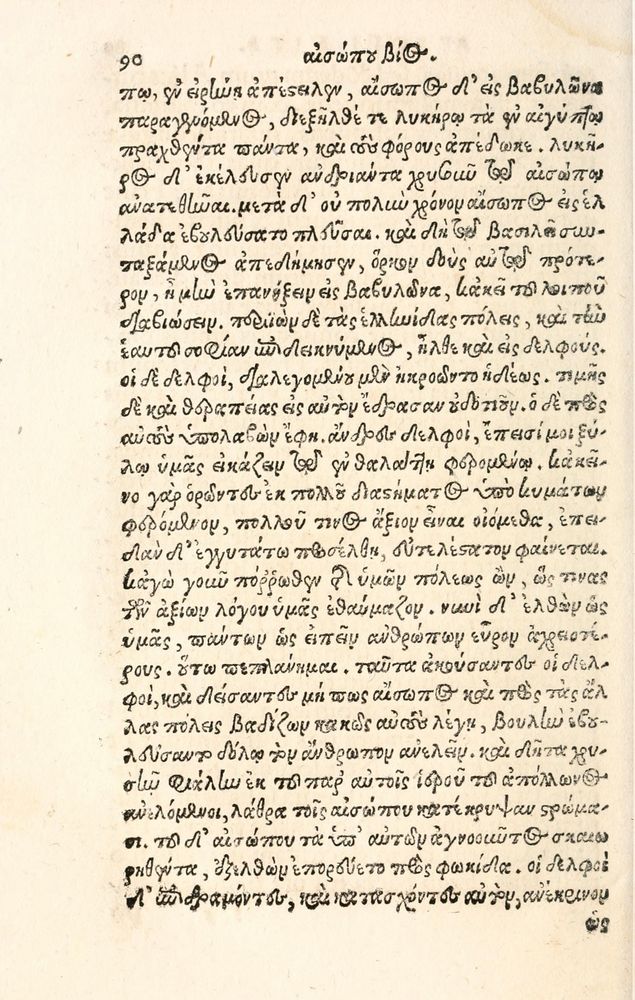 90 αἰσώπου βίος.
πῳ, ἐν εἰρήνῃ ἀπέστειλεν, αἴσωπος δ' εἰς βαβυλῶνα
παραγενόμενος, διεξῆλθέ τε λυκήρῳ τὰ ἐν αἰγύπτῳ
πραχθέντα πάντα, καὶ τοὺς φόρους ἀπέδωκε. λυκῆ-
ρος δ' ἐκέλευσεν ἀνδριάντα χρυσοῦν τῷ αἰσώπῳ
ἀνατεθῆναι. μετὰ δ' οὐ πολὺν χρόνον αἴσωπος εἰς ἑλ
λάδα ἐβουλεύσατο πλεῦσαι. καὶ δὴ τῷ βασιλεῖ συν-
ταξάμενος ἀπεδήμησεν, ὅρκον δοὺς αὐτῷ πρότε-
ρον, ἦ μὴν ἐπανήξειν εἰς βαβυλῶνα, κἀκεῖ τοῦ λοιποῦ
διαβιώσειν. περιϊὼν δὲ τὰς ἑλληνίδας πόλεις, καὶ τὴν
ἑαυτοῦ σοφίαν ἐπιδεικνύμενος, ἦλθε καὶ εἰς δελφούς.
οἱ δὲ δελφοὶ, διαλεγομένου μὲν ἠκροῶντο ἡδέως. τιμῆς
δὲ καὶ θεραπείας εἰς αὐτὸν ἔδρασαν οὐδοτιοῦν. ὁ δὲ πρὸς
αὐτοὺς ὑπολαβὼν ἔφη. ἄνδρες δελφοὶ, ἔπεισί μοι ξύ-
λῳ ὑμᾶς εἰκάζειν τῷ ἐν θαλάττῃ φερομένῳ. κἀκεῖ-
νο γὰρ ὁρῶντες ἐκ πολλοῦ διαστήματος ὑπὸ κυμάτων
φερόμενον, πολλοῦ τινος ἄξιον εἶναι οἰόμεθα, ἐπει-
δὰν δ' ἐγγυτάτω προσέλθῃ, εὐτελέστατον φαίνεται.
κἀγὼ γοῦν πόῤῥωθεν τῆς ὑμῶν πόλεως ὢν, ὥς τινας
τῶν ἀξίων λόγου ὑμᾶς ἐθαύμαζον. νυνὶ δ' ἐλθὼν ὡς
ὑμᾶς, πάντων ὡς εἰπεῖν ἀνθρώπων εὗρον ἀχρειοτέ-
ρους. οὕτω πεπλάνημαι. ταῦτα ἀκούσαντες οἱ δελ-
φοὶ, καὶ δείσαντες μή πως αἴσωπος καὶ πρὸς τὰς ἄλ
λας πόλεις βαδίζων κακῶς αὐτοὺς λέγῃ, βουλὴν ἐβου-
λεύσαντο δόλῳ τὸν ἄνθρωπον ἀνελεῖν. καὶ δῆτα χρυ-
σῆν φιάλην ἐκ τοῦ παρ' αὐτοῖς ἱεροῦ τοῦ ἀπόλλωνος
ἀνελόμενοι, λάθρα τοῖς αἰσώπου κατέκρυψαν στρώμα-
σι. τοῦ δ' αἰσώπου τὰ ὑπ' αὐτῶν ἀγνοοῦντος σκαιω
ρηθέντα, ἐξελθὼν ἐπορεύετο πρὸς φωκίδα. οἱ δελφοὶ
δ' ἐπιδραμόντες, καὶ κατασχόντες αὐτὸν, ἀνέκρινον
ὡς